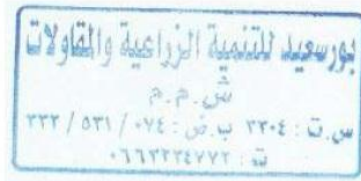 بورسعيد للتنمية الزراعية والمقاولات
ش.م.م
س.ت : ٢٢٠٤ ب.ض : ٠٧٤ / ٥٣١ / ٢٢٢
ت : ٠٦٦٣٢٢٤٧٧٢